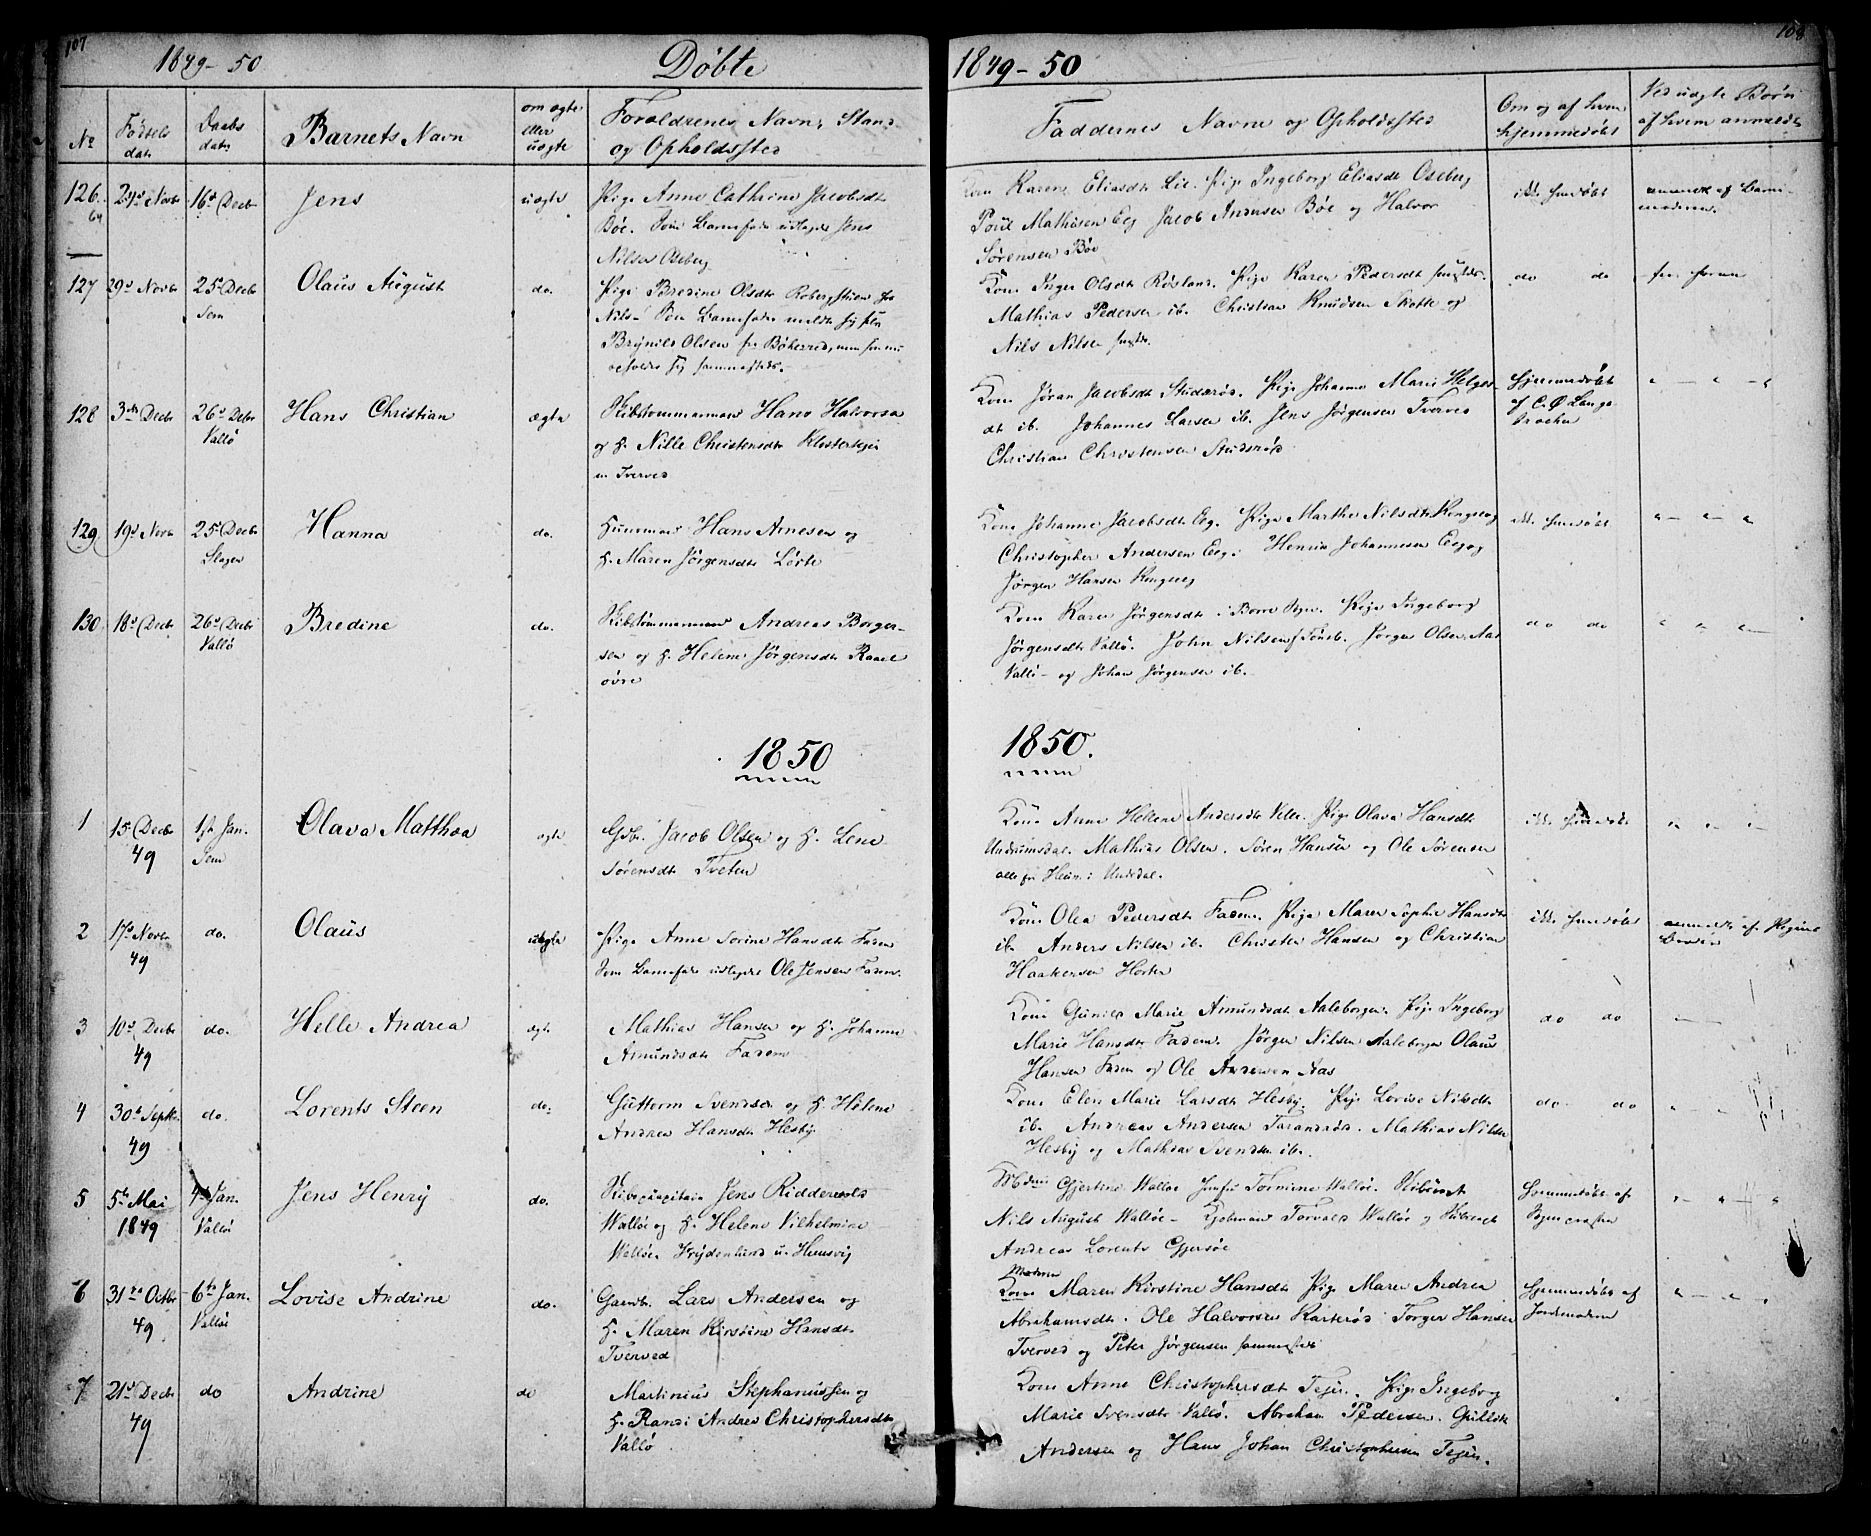 107
1849-50
Døbte
No
Fødsels
dato
Daabs
dato
Barnets Navn
om ægte
eller
uægte
Forældrenes Navn, Stand
og Opholdssted
126.
24d Novbr
16d Decbr
Jens
uægte
Pige Anne Cathrine Jacobsdt
Bøe. Som Barnefader udlagdes Jens
Nilsen Oseberg
127
29d Novbr
25d Decbr
Sem
Olaus August
do.
Pige Bredine Olsdt
Brynild Olsen fra Bøherred, men
128
3die Decbr
26d Decbr
Vallø
Hans Christian
ægte
Skibstømmermand Hans Halvorsen
og H. Nille Christensdt Klosterejer
u Tverved
129
19d Novb
25d Decbr
Slagen
Hanna
do.
Huusmand Hans Arnesen og
H. Maren Jørgensdt
130
18d Decbr
26d Decbr
Vallø
Bredine
do.
Skibstømmermand Andreas Borger-
sen og H. Helene Jørgensdt Rael
øvre
1850
1
15 Decbr
49
1ste Jan.
Sem
Olava Matthea
ægte
Gdbr. Jacob Olsen og H. Lene
Sørensdt Tveten
2
17d Novbr
49
do.
Olaus
uægte
Pige Anne Sorine Hansdt Fadem
Som Barnefader udlagdes Ole Jensen Fadem.
3
10d Decbr
49
do.
Helle Andrea
ægte
Mathias Hansen og H. Johanne
Amundsdt Fadem
4
30d Septbr
49
do.
Lorents Steen
do.
Guttorm Svendsen og H. Helene
Andrea Hansdt Hesby.
5
5te Mai
1849
4de Jan.
Vallø
Jens Henry
do.
Skibscapitain Jens Riddervold
Walløe og H. Helene Vilhelmine
Walløe
6
31te Octbr
49
6te Jan.
Vallø
Lovise Andrine
do.
Gaardbr. Lars Andersen og
H. Maren Kirstine Hansdt
Tverved
7
21d Decbr
49
do
Andrine
do
Martinius Stephanussen og
H. Randi Andrea Christophersdt
Vallø
108
1849-50
Faddernes Navne og Opholdssted
Om og af hvem
hjemmedøbt
Ved uægte Børn
af hvem anmeldt
Kone Karen Eliasdt Lie. Pige Ingeborg Eliasdt Oseberg
Poul Mathisen Eeg Jacob Andersen Bøe og Halvor
Sørensen Bøe
ikke hmdøbt
anmeldt af Barne-
moderen.
Kone Inger Olsdt Røsland. Pige Karen Pedersdt
Mathias Pedersen ib. Christian Knudsen Skotte og
Nils Nilsen
do do
Kone Jøran Jacobsdt Studsrød. Pige Johanne Marie Helges-
dt ib. Johannes Larsen ib. Jens Jørgensen Tverved
Christian Christensen Studsrød
hjemmedøbt
af C. Ø. Lange
" — " — "
Kone Johanne Jacobsdt Eeg. Pige Marthe Nilsdt Ringeeg
Christopher Andersen Eeg. Henrik Johannesen Eeg og
Jørgen Hansen Ringeeg
ikke hmdøbt
" — " — "
Kone Karen Jørgensdt i Borre Sogn. Pige Ingeborg
Jørgensdt Vallø. John Nilsen f Tønsb. Jørgen Olsen Aas
Vallø - og Johan Jørgensen ib.
do do
" " " —
1850.
Kone Anne Helene Andersdt Velle. Pige Olava Hansdt
Undrumsdal. Mathias Olsen. Søren Hansen og Ole Sørensen
alle fra Heian i Undrdal.
ikke hmdøbt
" " " —
Kone Olea Pedersdt Fadem. Pige Maren Sophie Hansdt
ib. Anders Nilsen ib. Christen Hansen og Christian
Haakensen Horten
ikke hmdøbt
anmeldt af Pigens
Broder
Kone Gunild Marie Amundsdt Aaleborgen. Pige Ingeborg
Marie Hansdt Fadem. Jørgen Nilsen Aaleborgen Olaus
Hansen Fadem og Ole Andersen Aas
do do
Kone Elen Marie Larsdt Hesby. Pige Lovise Nilsdt
ib. Andreas Andersen Farandrød. Mathias Nilsen
Hesby og Mathias Svendsen ib.
do. do
" — " —
Gjertine Walløe Tomine Walløe.
Nils August Walløe - Kjøbmand Torvald Walløe og
Andreas Lorents Gjersøe
hjemmedøbt af
Sognepræsten
" — " — "
Moderen
Kone Maren Kirstine Hansdt Pige Maren Andrea
Abrahamsdt. Ole Halvorsen Rakterød Torger Hansen
Tverved og Peter Jørgensen sammesteds
hjemmedøbt af
Jordmoderen
" — " — "
Kone Anne Christophersdt Tejen. Pige Ingeborg
Marie Svensdt Vallø. Abraham Pedersen. Gullik
Andersen og Hans Johan Christophersen Tejen.